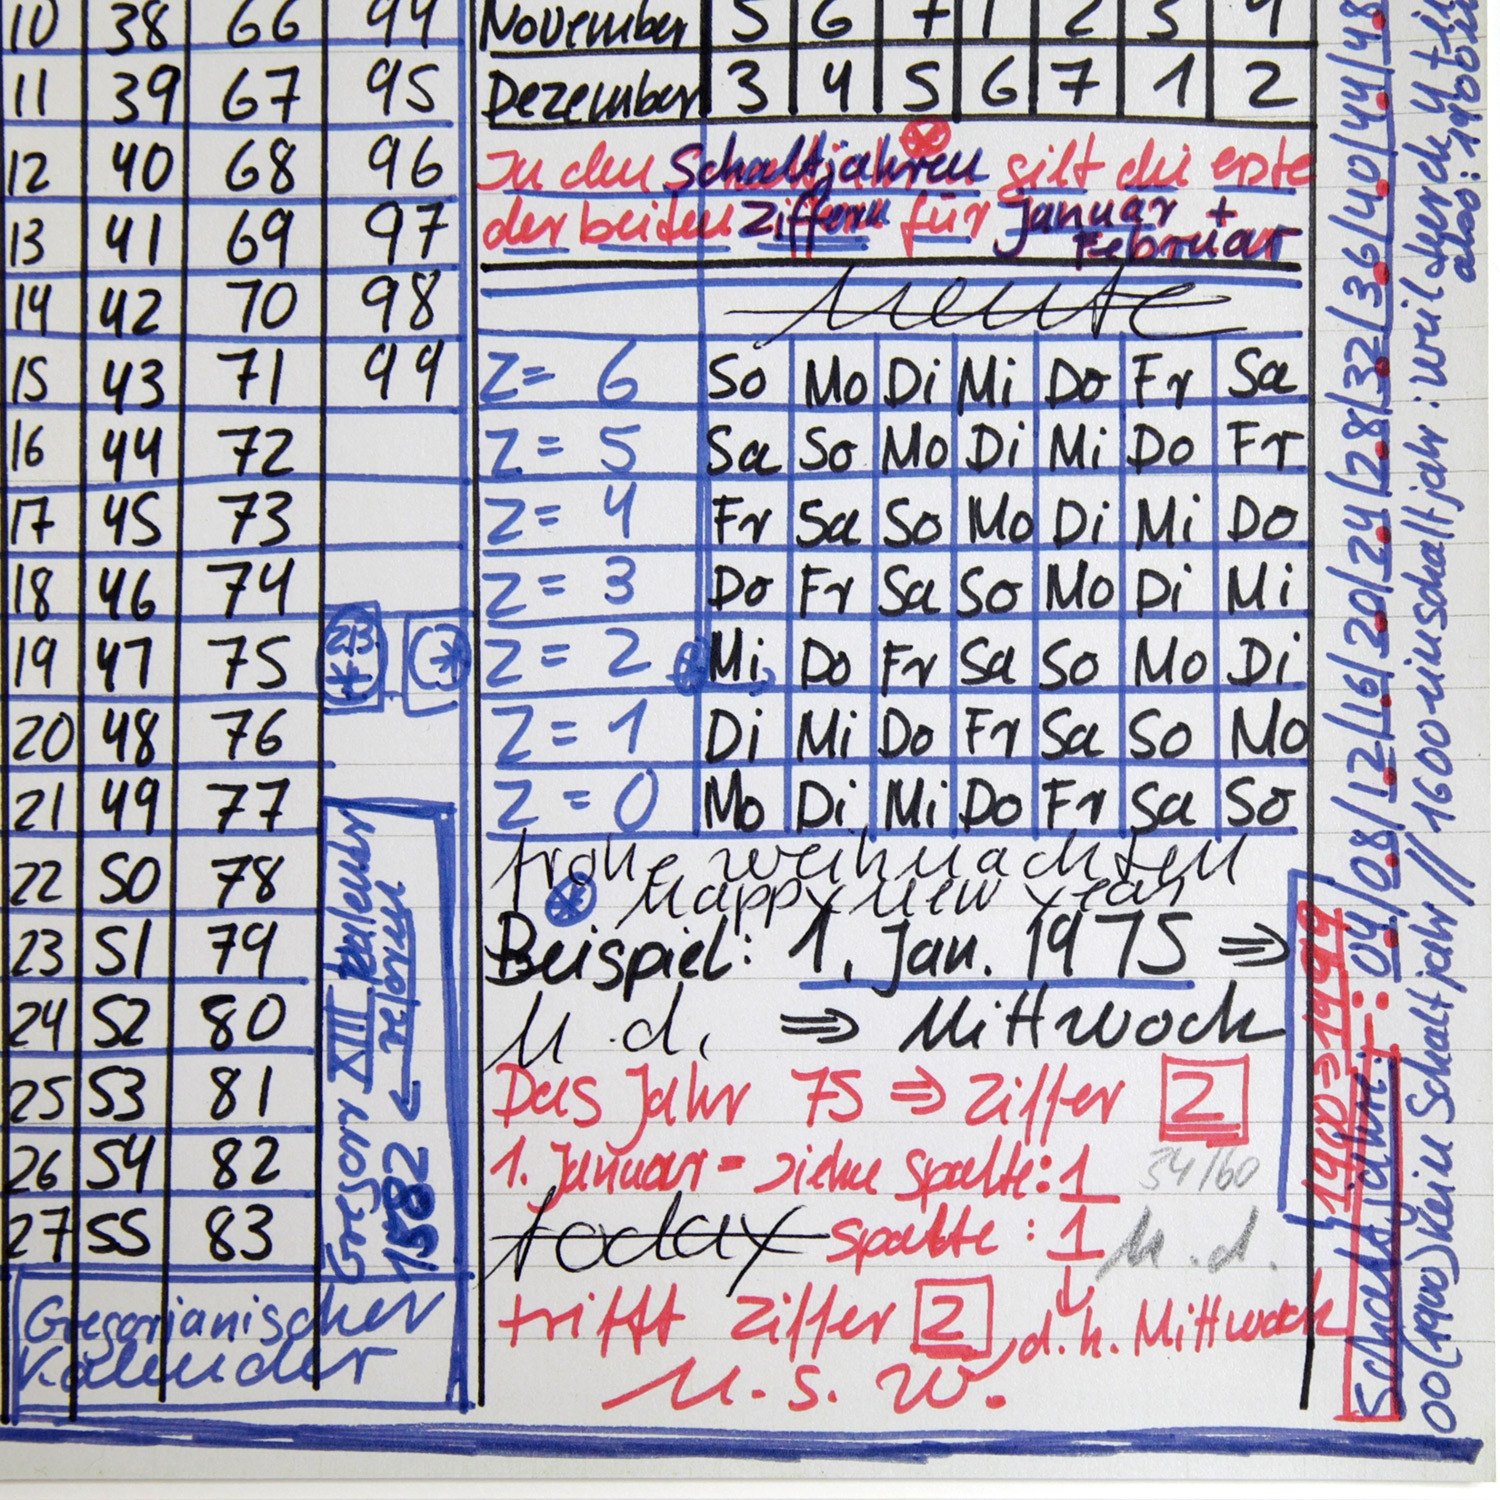 10 38 66 94
11 39 67 95
12 40 68 96
13 41 69 97
14 42 70 98
15 43 71 99
16 44 72
17 45 73
18 46 74
19 47 75
20 48 76
21 49 77
22 50 78
23 51 79
24 52 80
25 53 81
26 54 82
27 55 83
Gregor XIII
1582 ←
Gregorianischer
Kalender
November 5 6 7 1 2 3 4
Dezember 3 4 5 6 7 1 2
In den Schaltjahren gilt die erste
der beiden Ziffern für Januar +
Februar
heute
Z= 6 So Mo Di Mi Do Fr Sa
Z= 5 Sa So Mo Di Mi Do Fr
Z= 4 Fr Sa So Mo Di Mi Do
Z= 3 Do Fr Sa So Mo Di Mi
Z= 2 Mi Do Fr Sa So Mo Di
Z= 1 Di Mi Do Fr Sa So Mo
Z= 0 Mo Di Mi Do Fr Sa So
frohe weihnachten
Happy new year
Beispiel: 1. Jan. 1975 ⇒
u.d. ⇒ Mittwoch
Das Jahr 75 ⇒ Ziffer 2
1. Januar = siehe Spalte: 1
54/60
today spalte: 1
u.d.
trifft Ziffer 2, d.h. Mittwoch
u.s.w.
1900⇒1999
Schaltjahre: 04/08/12/16/20/24/28/32/36/40/44/48
00(1900) kein Schaltjahr // 1600 ein Schaltjahr: weil durch 4
also: 1900